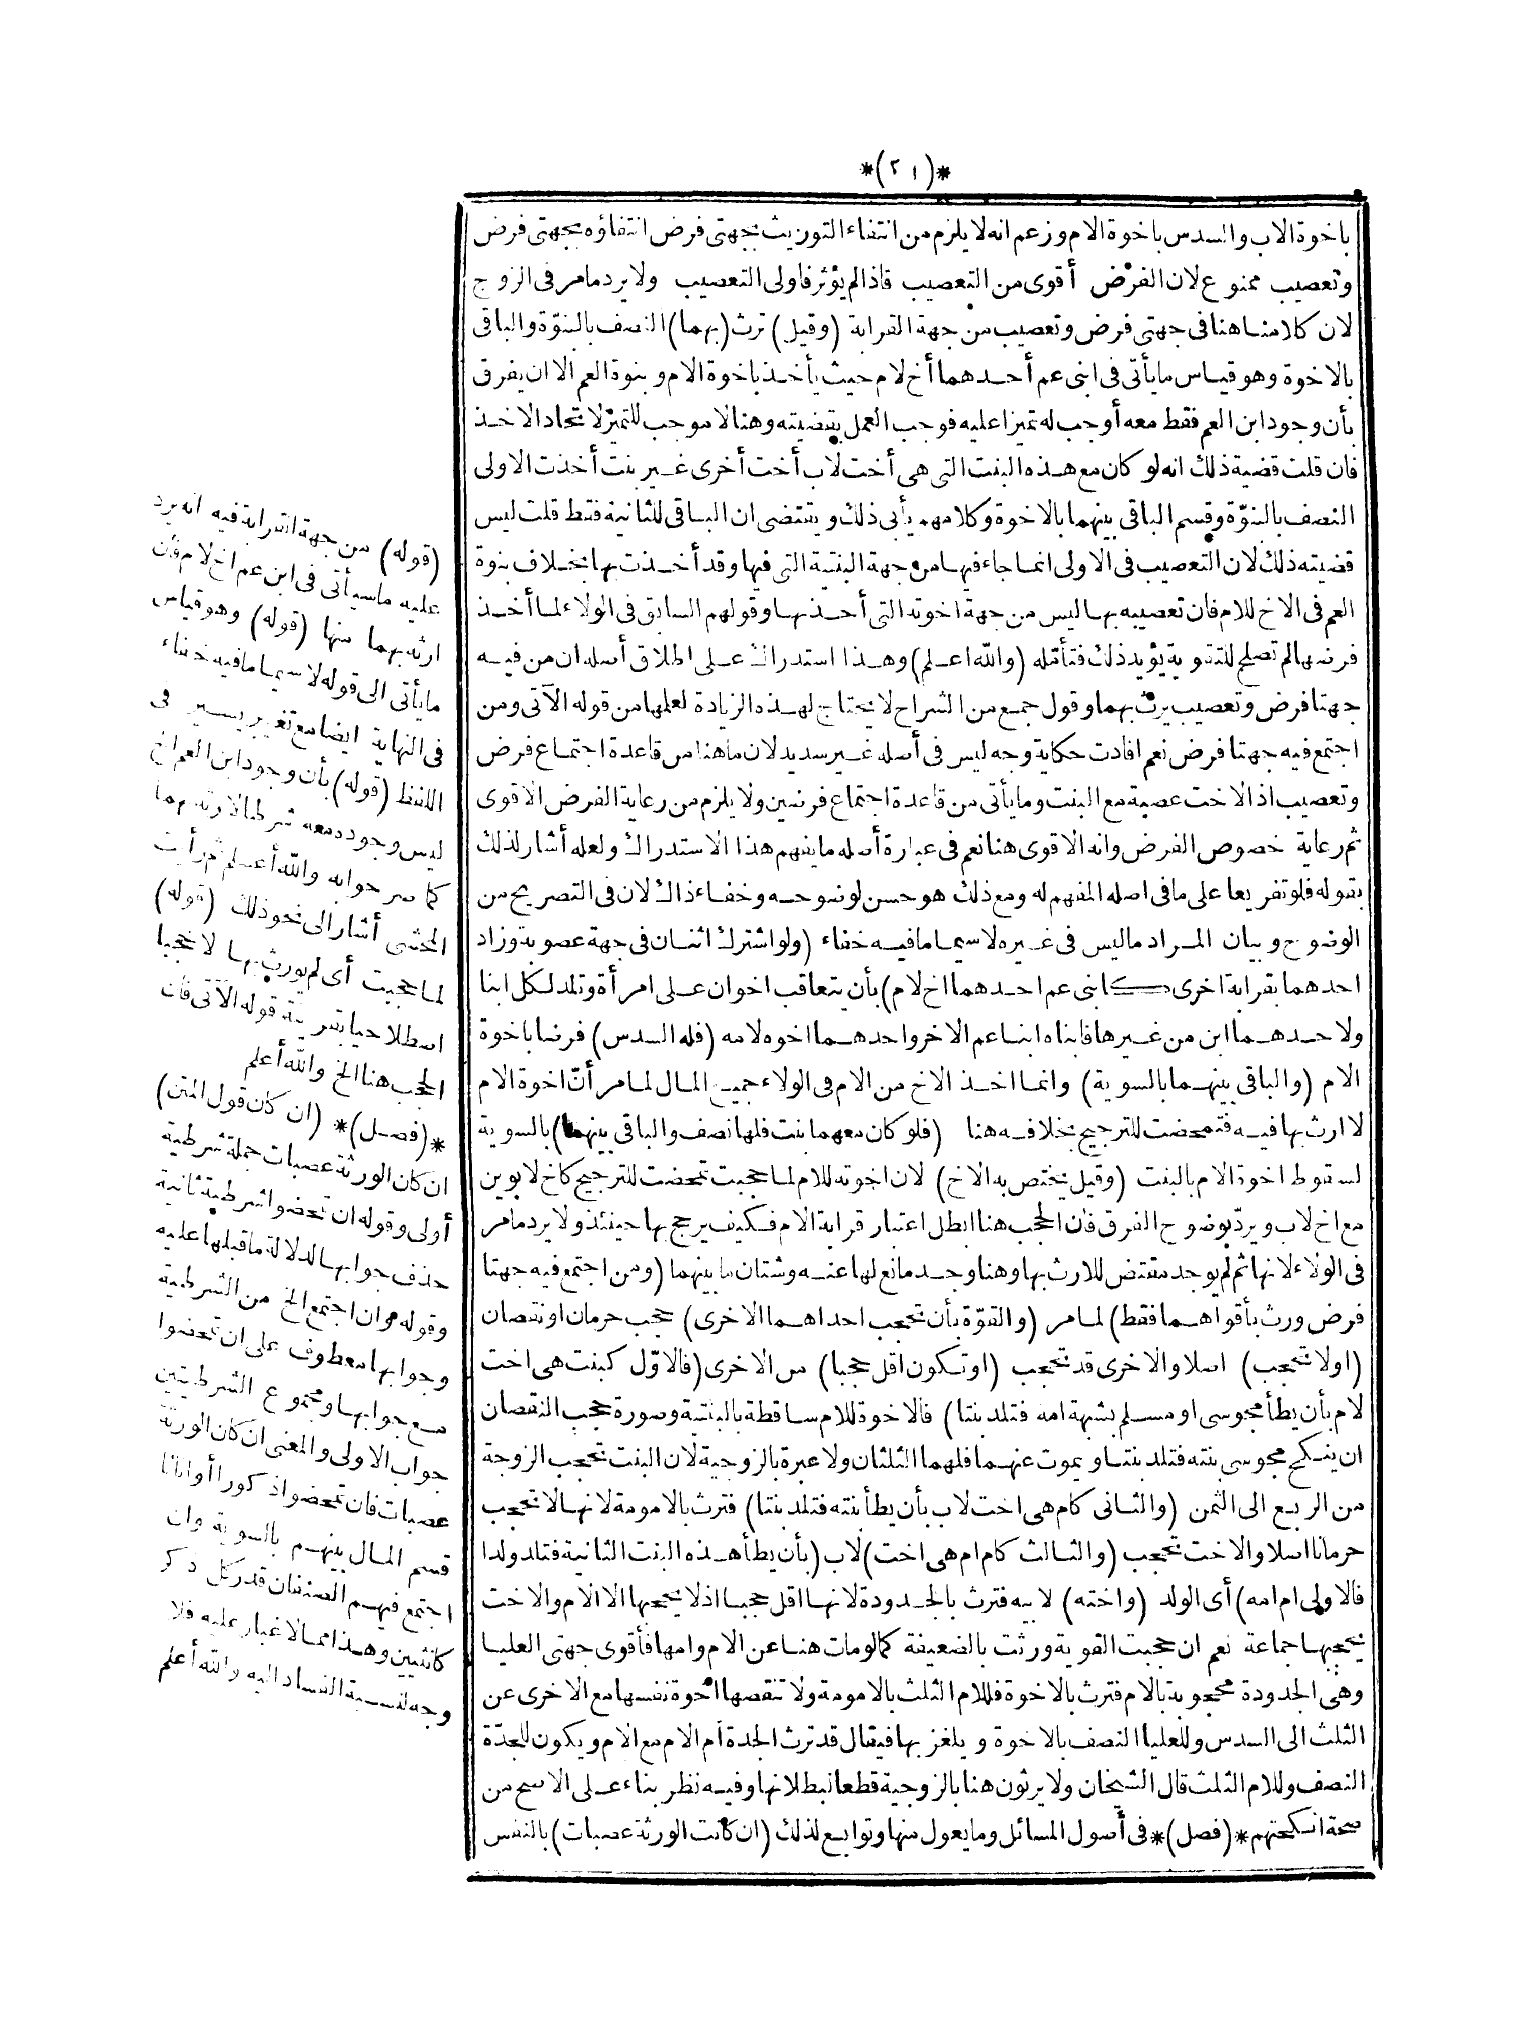 *(٢١)*
باخوة الاب والسدس باخوة الام وزعم انه لا يلزم من انتفاء التوريث بجهتى فرض انتفاؤه بجهتى فرض
وتعصيب ممنوع لان الفرض أقوى من التعصيب فاذا لم يؤثر فاولى التعصيب ولا يرد مامر فى الزوج
لان كلامنا هنا فى جهتى فرض وتعصيب من جهة القرابة (وقيل) ترث (بهما) النصف بالبنوّة والباقى
بالاخوة وهو قياس ما يأتى فى ابنى عم أحدهما أخ لام حيث يأخذ باخوة الام وبنوة العم الا ان يفرق
بأن وجود ابن العم فقط معه أوجب له تميزا عليه فوجب العمل بقضيته وهنا لا موجب للتميز لاتحاد الاخذ
فان قلت قضية ذلك انه لو كان مع هذه البنت التى هى أخت لاب أخت أخرى غير بنت أخذت الاولى
النصف بالبنوّة وقسم الباقى بينهما بالاخوة وكلامهم يأبى ذلك ويقتضى ان الباقى للثانية فقط قلت ليس
قضيته ذلك لان التعصيب فى الاولى انما جاء فيها من جهة البنتية التى فيها وقد أخذت بها بخلاف بنوة
العم فى الاخ للام فان تعصيبه بها ليس من جهة اخوته التى أخذ بها وقولهم السابق فى الولاء لما أخذ
فرضها لم تصلح للتقوية يؤيد ذلك فتأمله (والله اعلم) وهذا استدراك على اطلاق أصله ان من فيه
جهتا فرض وتعصيب يرث بهما وقول جمع من الشراح لا يحتاج لهذه الزيادة لعلمها من قوله الآتى ومن
اجتمع فيه جهتا فرض نعم افادت حكاية وجه ليس فى أصله غير سديد لان ما هنا من قاعدة اجتماع فرض
وتعصيب اذ الاخت عصبة مع البنت وما يأتى من قاعدة اجتماع فرضين ولا يلزم من رعاية الفرض الاقوى
ثم رعاية خصوص الفرض وانه الاقوى هنا نعم فى عبارة أصله ما يفهم هذا الاستدراك ولعله أشار لذلك
بقوله فلو تفريعا على ما فى اصله المفهم له ومع ذلك هو حسن لوضوحه وخفاء ذاك لان فى التصريح من
الوضوح وبيان المراد ما ليس فى غيره لا سيما ما فيه خفاء (ولو اشترك اثنان فى جهة عصوبة وزاد
احدهما بقرابة اخرى كابنى عم احدهما اخ لام) بأن يتعاقب اخوان على امرأة وتلد لكل ابنا
ولاحدهما ابن من غيرها فابناه ابنا عم الاخر واحدهما اخوه لامه (فله السدس) فرضا باخوة
الام (والباقى بينهما بالسوية) وانما اخذ الاخ من الام فى الولاء جميع المال لما مر أنّ اخوة الام
لا ارث بها فيه فتمحضت للترجيح بخلافه هنا (فلو كان معهما بنت فلها نصف والباقى بينهما) بالسوية
لسقوط اخوة الام بالبنت (وقيل يختص به الاخ) لان اخوته للام لما حجبت تمحضت للترجيح كاخ لابوين
مع اخ لاب ويردّ بوضوح الفرق فان الحجب هنا ابطل اعتبار قرابة الام فكيف يرجح بها حينئذ ولا يرد مامر
فى الولاء لانها ثم لم يوجد مقتض للارث بها وهنا وجد مانع لها عنه وشتان ما بينهما (ومن اجتمع فيه جهتا
فرض ورث بأقواهما فقط) لما مر (والقوّة بأن تحجب احداهما الاخرى) حجب حرمان او نقصان
(اولا تحجب) اصلا والاخرى قد تحجب (او تكون اقل حجبا) من الاخرى (فالاوّل كبنت هى اخت
لام بأن يطأ مجوسى او مسلم بشبهة امه فتلد بنتا) فالاخوة للام ساقطة بالبنتية وصورة حجب النقصان
ان ينكح مجوسى بنته فتلد بنتا ويموت عنهما فلهما الثلثان ولا عبرة بالزوجية لان البنت تحجب الزوجة
من الربع الى الثمن (والثانى كام هى اخت لاب بأن يطأ بنته فتلد بنتا) فترث بالامومة لانها لا تحجب
حرمانا اصلا والاخت تحجب (والثالث كام ام هى اخت) لاب (بأن يطأ هذه البنت الثانية فتلد ولدا
فالاولى ام امه) أى الولد (واخته) لابيه فترث بالجدودة لانها اقل حجبا اذ لا يحجبها الا الام والاخت
يحجبها جماعة نعم ان حجبت القوية ورثت بالضعيفة كما لو مات هنا عن الام وامها فأقوى جهتى العليا
وهى الجدودة محجوبة بالام فترث بالاخوة فللام الثلث بالامومة ولا تنقصها اخوة نفسها مع الاخرى عن
الثلث الى السدس وللعليا النصف بالاخوة ويلغز بها فيقال قد ترث الجدة أم الام مع الام ويكون للجدّة
النصف وللام الثلث قال الشيخان ولا يرثون هنا بالزوجية قطعا لبطلانها وفيه نظر بناء على الاصح من
صحة انكحتهم *(فصل)* فى أصول المسائل وما يعول منها وتوابع لذلك (ان كانت الورثة عصبات) بالنفس
(قوله) من جهة القرابة فيه انه يرد
عليه ما سيأتى فى ابن عم اخ لام فان
ارثه بهما منها (قوله) وهو قياس
ما يأتى الى قوله لا سيما ما فيه خفاء
فى النهاية ايضا مع تغيير يسير فى
اللفظ (قوله) بأن وجود ابن العم اخ
ليس وجوده معه شرطا لارثه بهما
كما مر جوابه والله أعلم ثم رأيت
المحشى أشار الى نحو ذلك (قوله)
لما حجبت أى لم يورث بها لا حجبا
اصطلاحيا بقرينة قوله الآتى فان
الحجب هنا الخ والله أعلم
*(فصل)* (ان كان قول المتن)
ان كان الورثة عصبات جملة شرطية
أولى وقوله ان تمحضوا شرطية ثانية
حذف جوابها لدلالة ما قبلها عليه
وقوله وان اجتمع الخ من الشرطية
وجوابها معطوف على ان تمحضوا
مع جوابها ومجموع الشرطيتين
جواب الاولى والمعنى ان كان الورثة
عصبات فان تمحضوا ذكورا أو اناثا
قسم المال بينهم بالسوية وان
اجتمع فيهم الصنفان قدر كل ذكر
كانثيين وهذا مما لا غبار عليه فلا
وجه لنسبة الفساد اليه والله أعلم